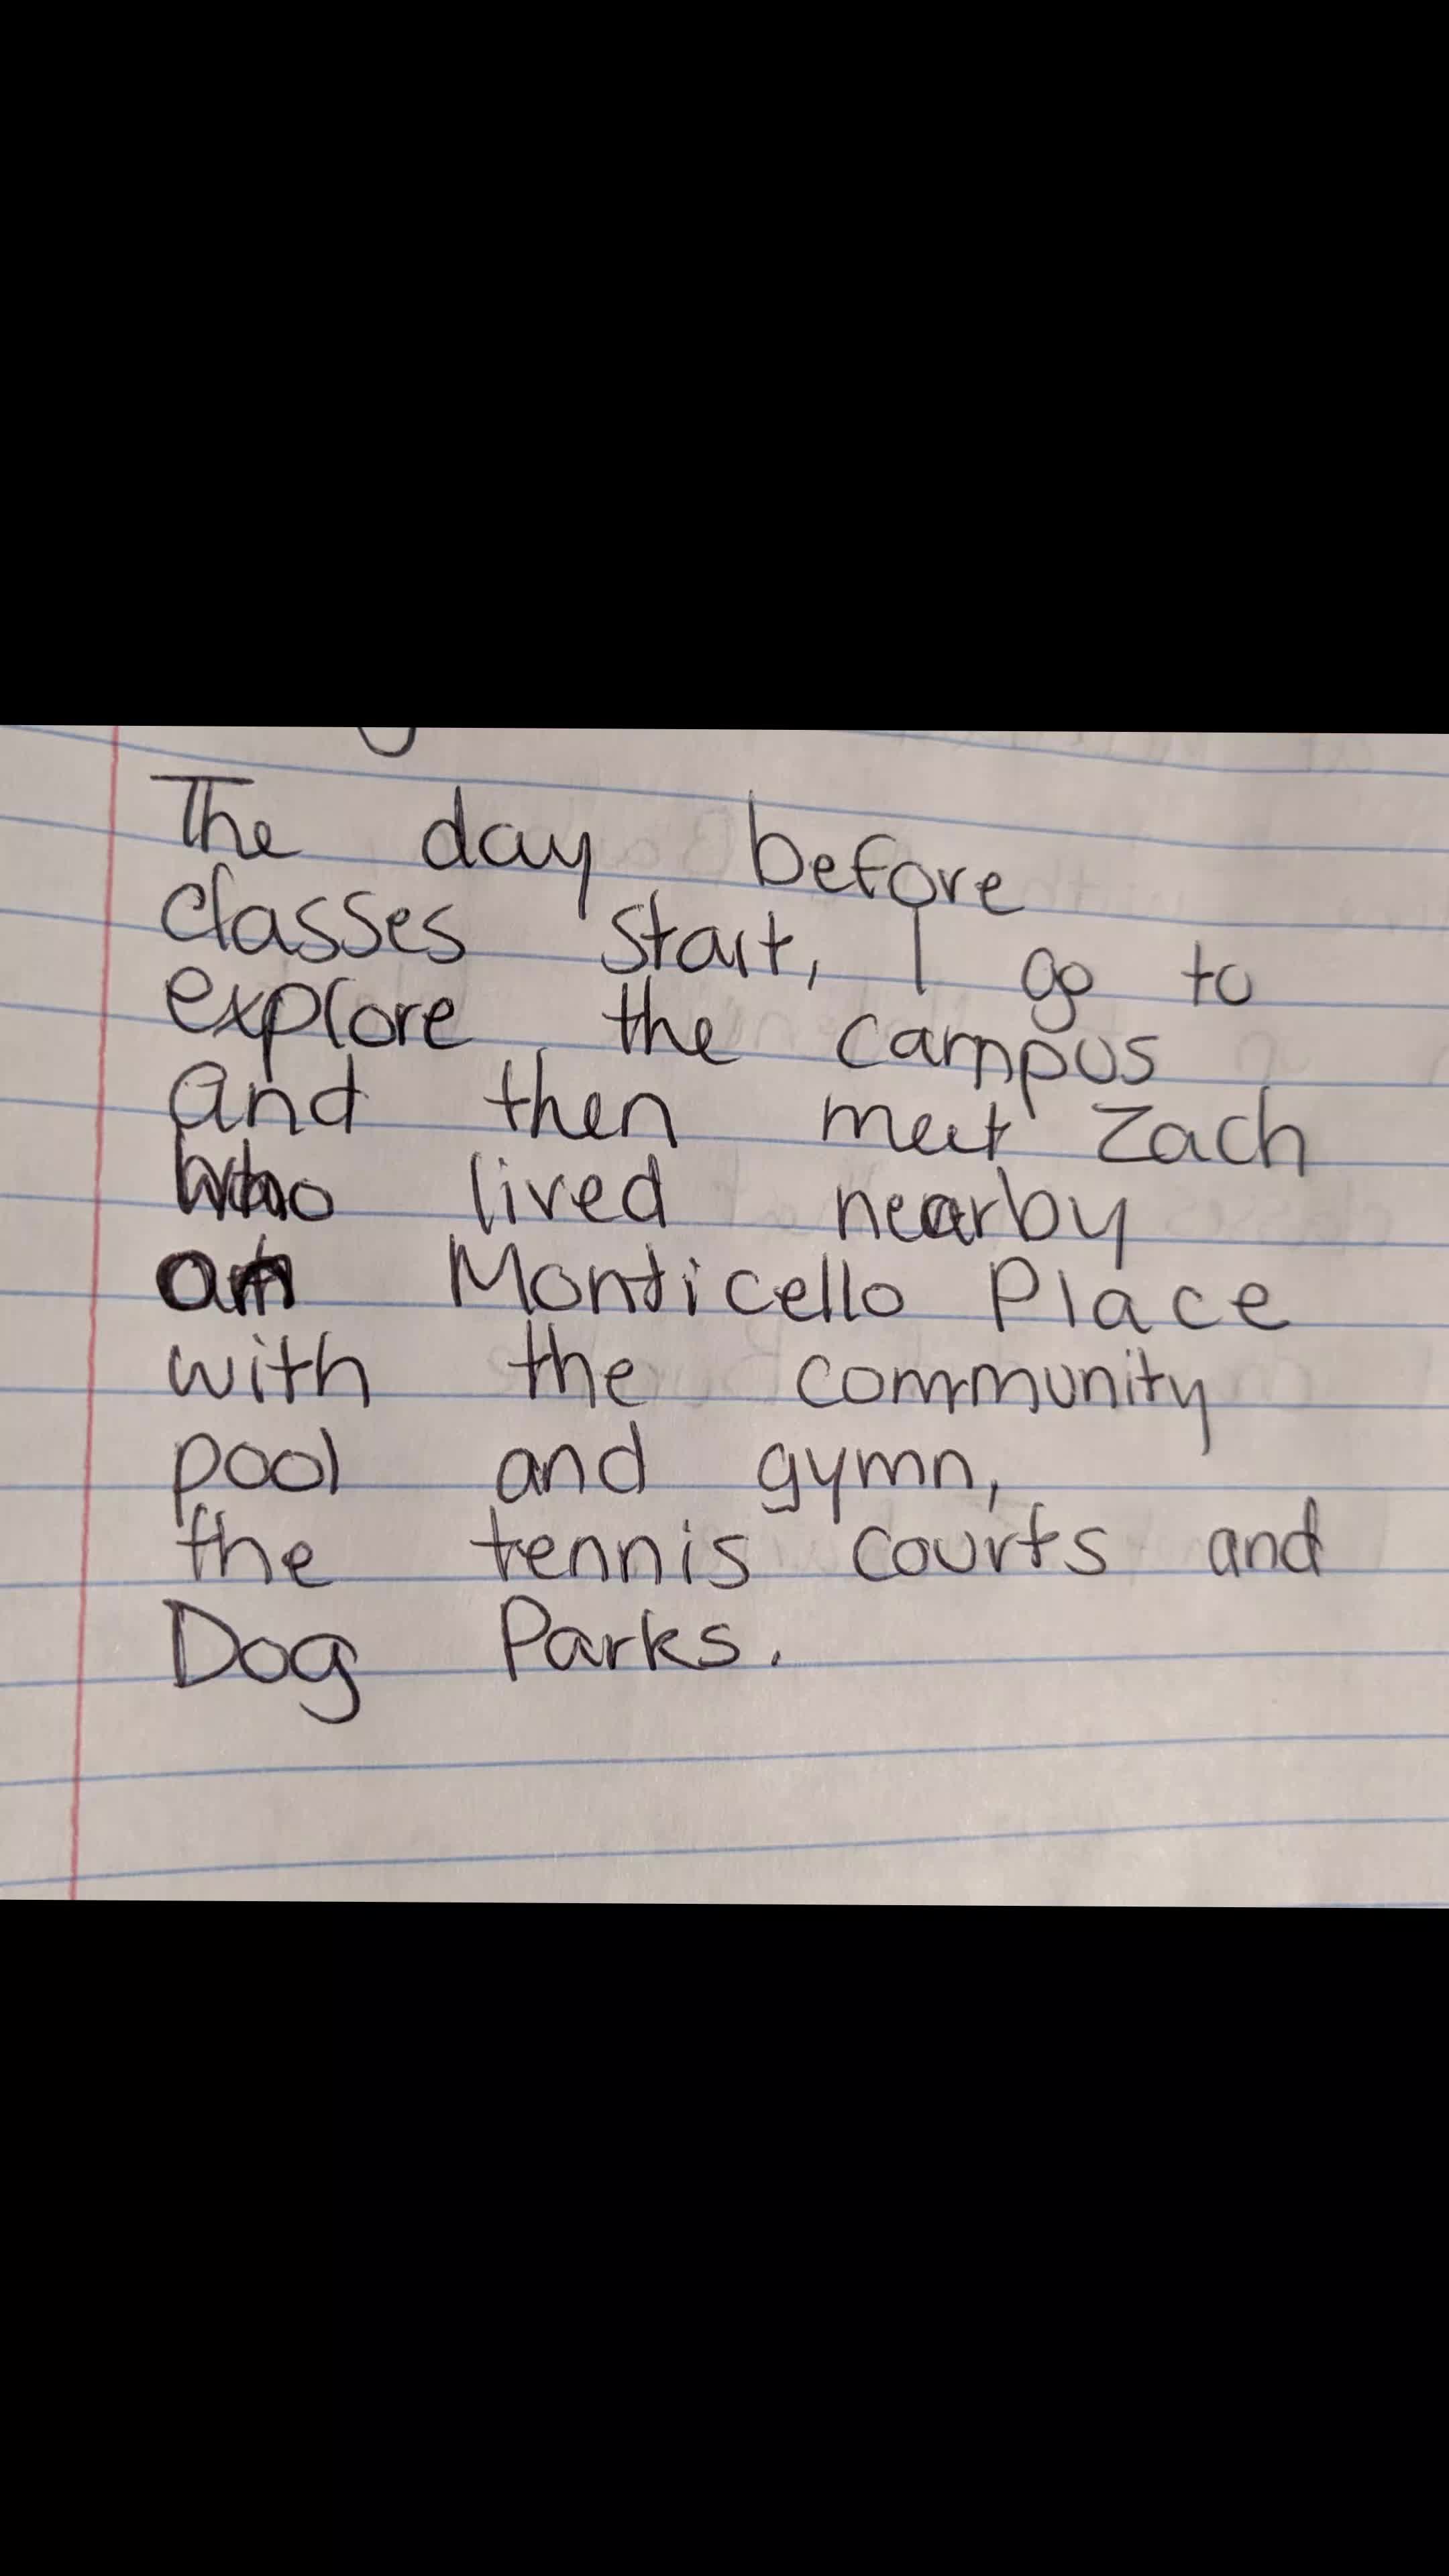 The day before
classes start, I go to
explore the campus
and then meet Zach
who lived nearby
Monticello Place
with the community
pool and gymn,
the tennis courts and
Dog Parks.